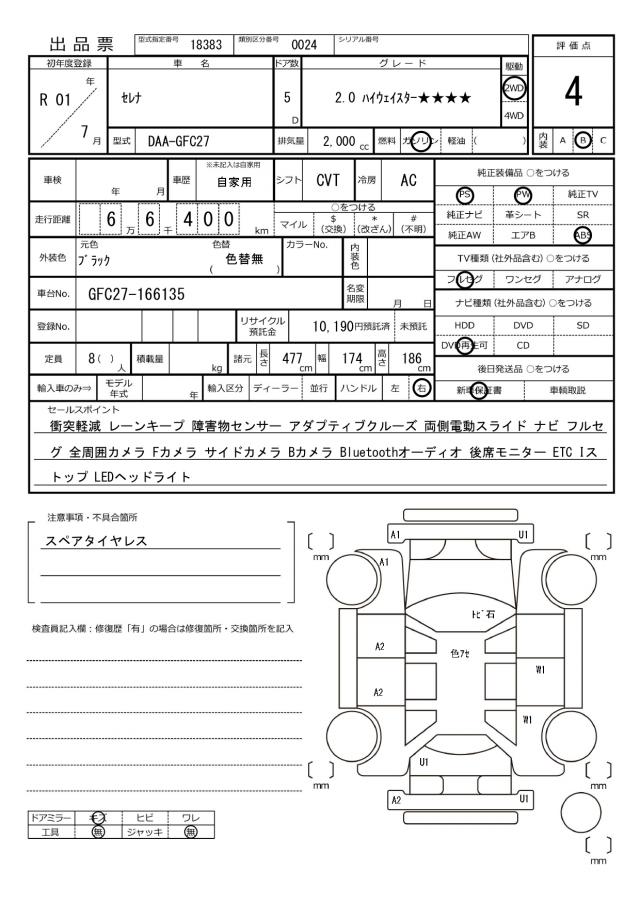 出品票 型式指定番号 18383 類別区分番号 0024 シリアル番号
評価点
4
内装 A B C
初年度登録 車名 ドア数 グレード 駆動
R 01 年 7 月 セレナ 5 D 2.0 ハイウェイスター★★★★ 2WD 4WD
型式 DAA-GFC27 排気量 2,000 cc 燃料 ガソリン 軽油 ( )
車検 年 月 車歴 ※未記入は自家用 自家用 シフト CVT 冷房 AC
走行距離 6 万 6 千 4 0 0 km ○をつける マイル $(交換) *(改ざん) #(不明)
外装色 元色 ブラック 色替 ( 色替無 ) カラーNo. 内装色
車台No. GFC27-166135 名変期限 月 日
登録No. リサイクル預託金 10,190円預託済 未預託
定員 8 ( ) 人 積載量 kg 諸元 長さ 477 cm 幅 174 cm 高さ 186 cm
輸入車のみ⇒ モデル年式 年 輸入区分 ディーラー 並行 ハンドル 左 右
純正装備品 ○をつける
PS PW 純正TV
純正ナビ 革シート SR
純正AW エアB ABS
TV種類 (社外品含む) ○をつける
フルセグ ワンセグ アナログ
ナビ種類 (社外品含む) ○をつける
HDD DVD SD
DVD再生可 CD
後日発送品 ○をつける
新車保証書 車輌取説
セールスポイント
衝突軽減 レーンキープ 障害物センサー アダプティブクルーズ 両側電動スライド ナビ フルセ
グ 全周囲カメラ Fカメラ サイドカメラ Bカメラ Bluetoothオーディオ 後席モニター ETC Iス
トップ LEDヘッドライト
注意事項・不具合箇所
スペアタイヤレス
検査員記入欄：修復歴「有」の場合は修復箇所・交換箇所を記入
ドアミラー キズ ヒビ ワレ
工具 無 ジャッキ 無
A1 U1
[ ] mm [ ] mm
A1
トビ石
A2 色アセ
W1
A2
W1
U1
[ ] mm [ ] mm
A2 U1
[ ] mm